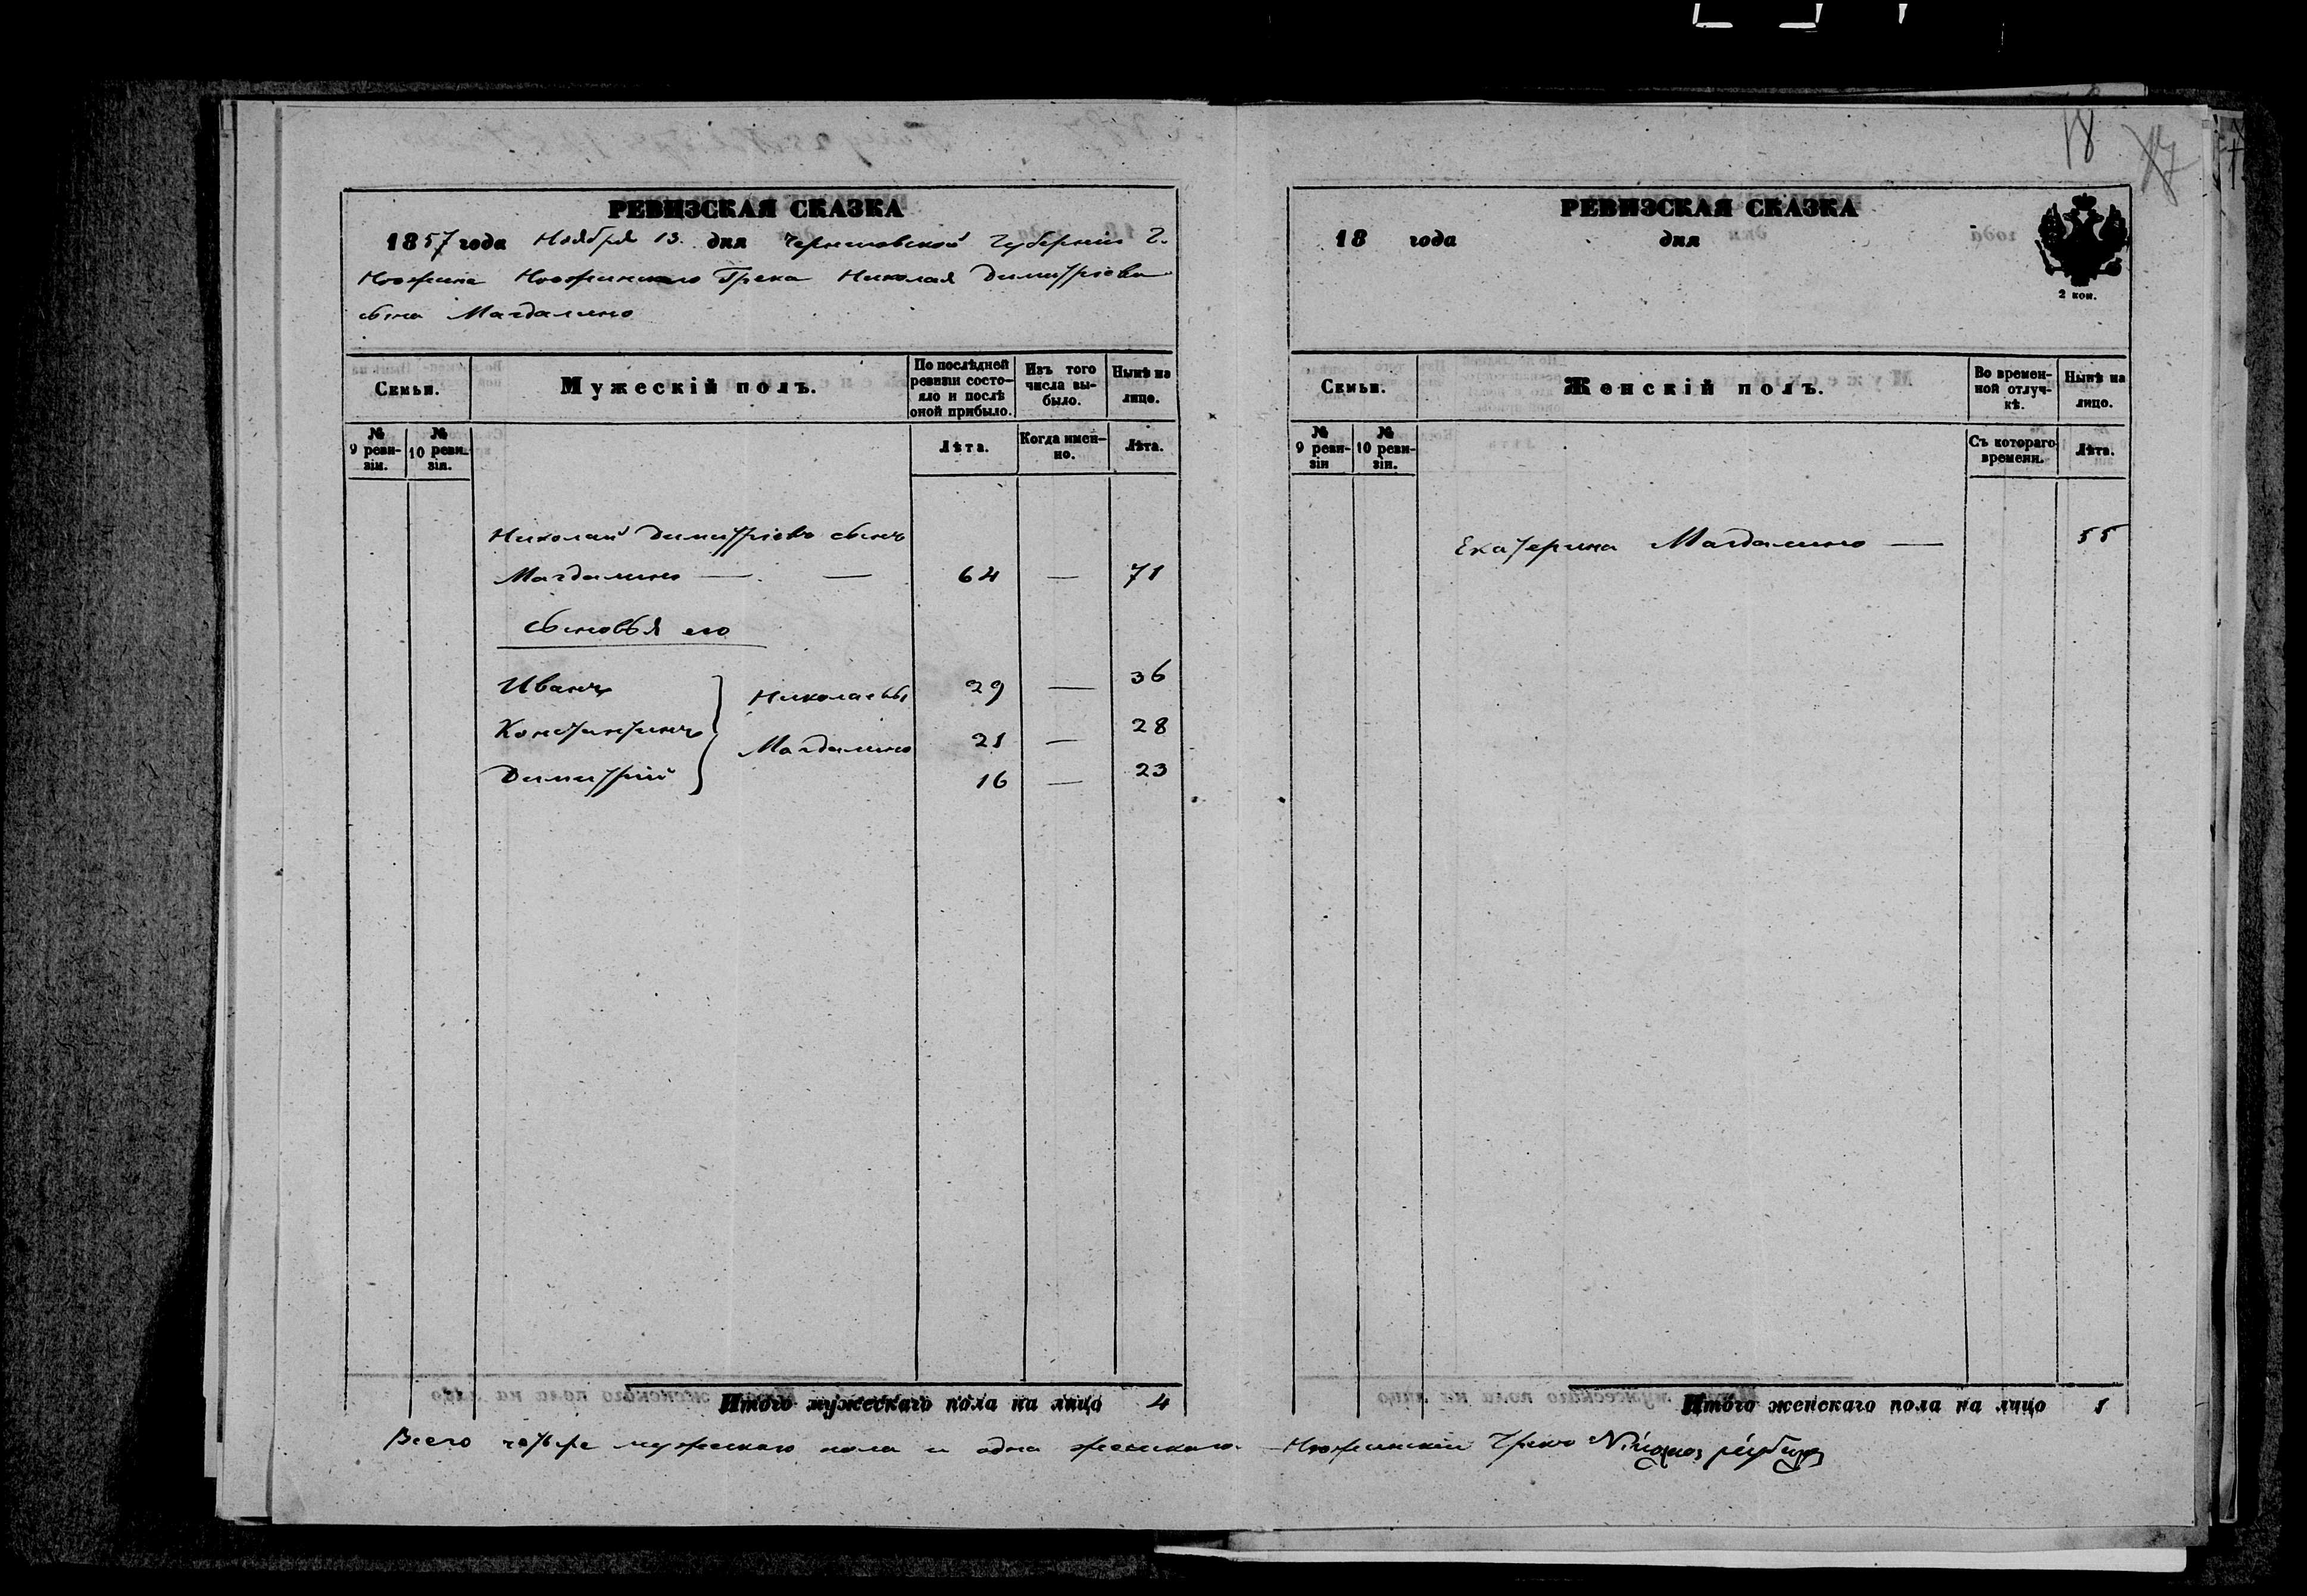 18
РЕВИЗСКАЯ СКАЗКА
1857 года Ноября 13. дня Черниговской Губернии Г.
Нѣжина Нѣжинскаго Грека Николая Димитріева
сына Магдалино
Семьи.
Мужескій полъ.
По послѣдней ревизіи состояло и послѣ оной прибыло.
Изъ того числа выбыло.
Нынѣ на лицо.
№ 9 ревизіи.
№ 10 ревизіи.
Лѣта.
Когда именно.
Лѣта.
Николай Димитріевъ сынъ
Магдалино — — 64 — 71
сыновья его
Иванъ 29 — 36
Константинъ 21 — 28
Димитрій 16 — 23
Николаевы
Магдалино
Итого мужескаго пола на лицо 4
Всего четыре мужескаго пола и одна женскаго.
РЕВИЗСКАЯ СКАЗКА
18 года дня
2 коп.
Семьи.
Женскій полъ.
Во временной отлучкѣ.
Нынѣ на лицо.
№ 9 ревизіи
№ 10 ревизіи.
Съ котораго времени.
Лѣта.
Екатерина Магдалино — 55
Итого женскаго пола на лицо 1
Нѣжинскій Грекъ